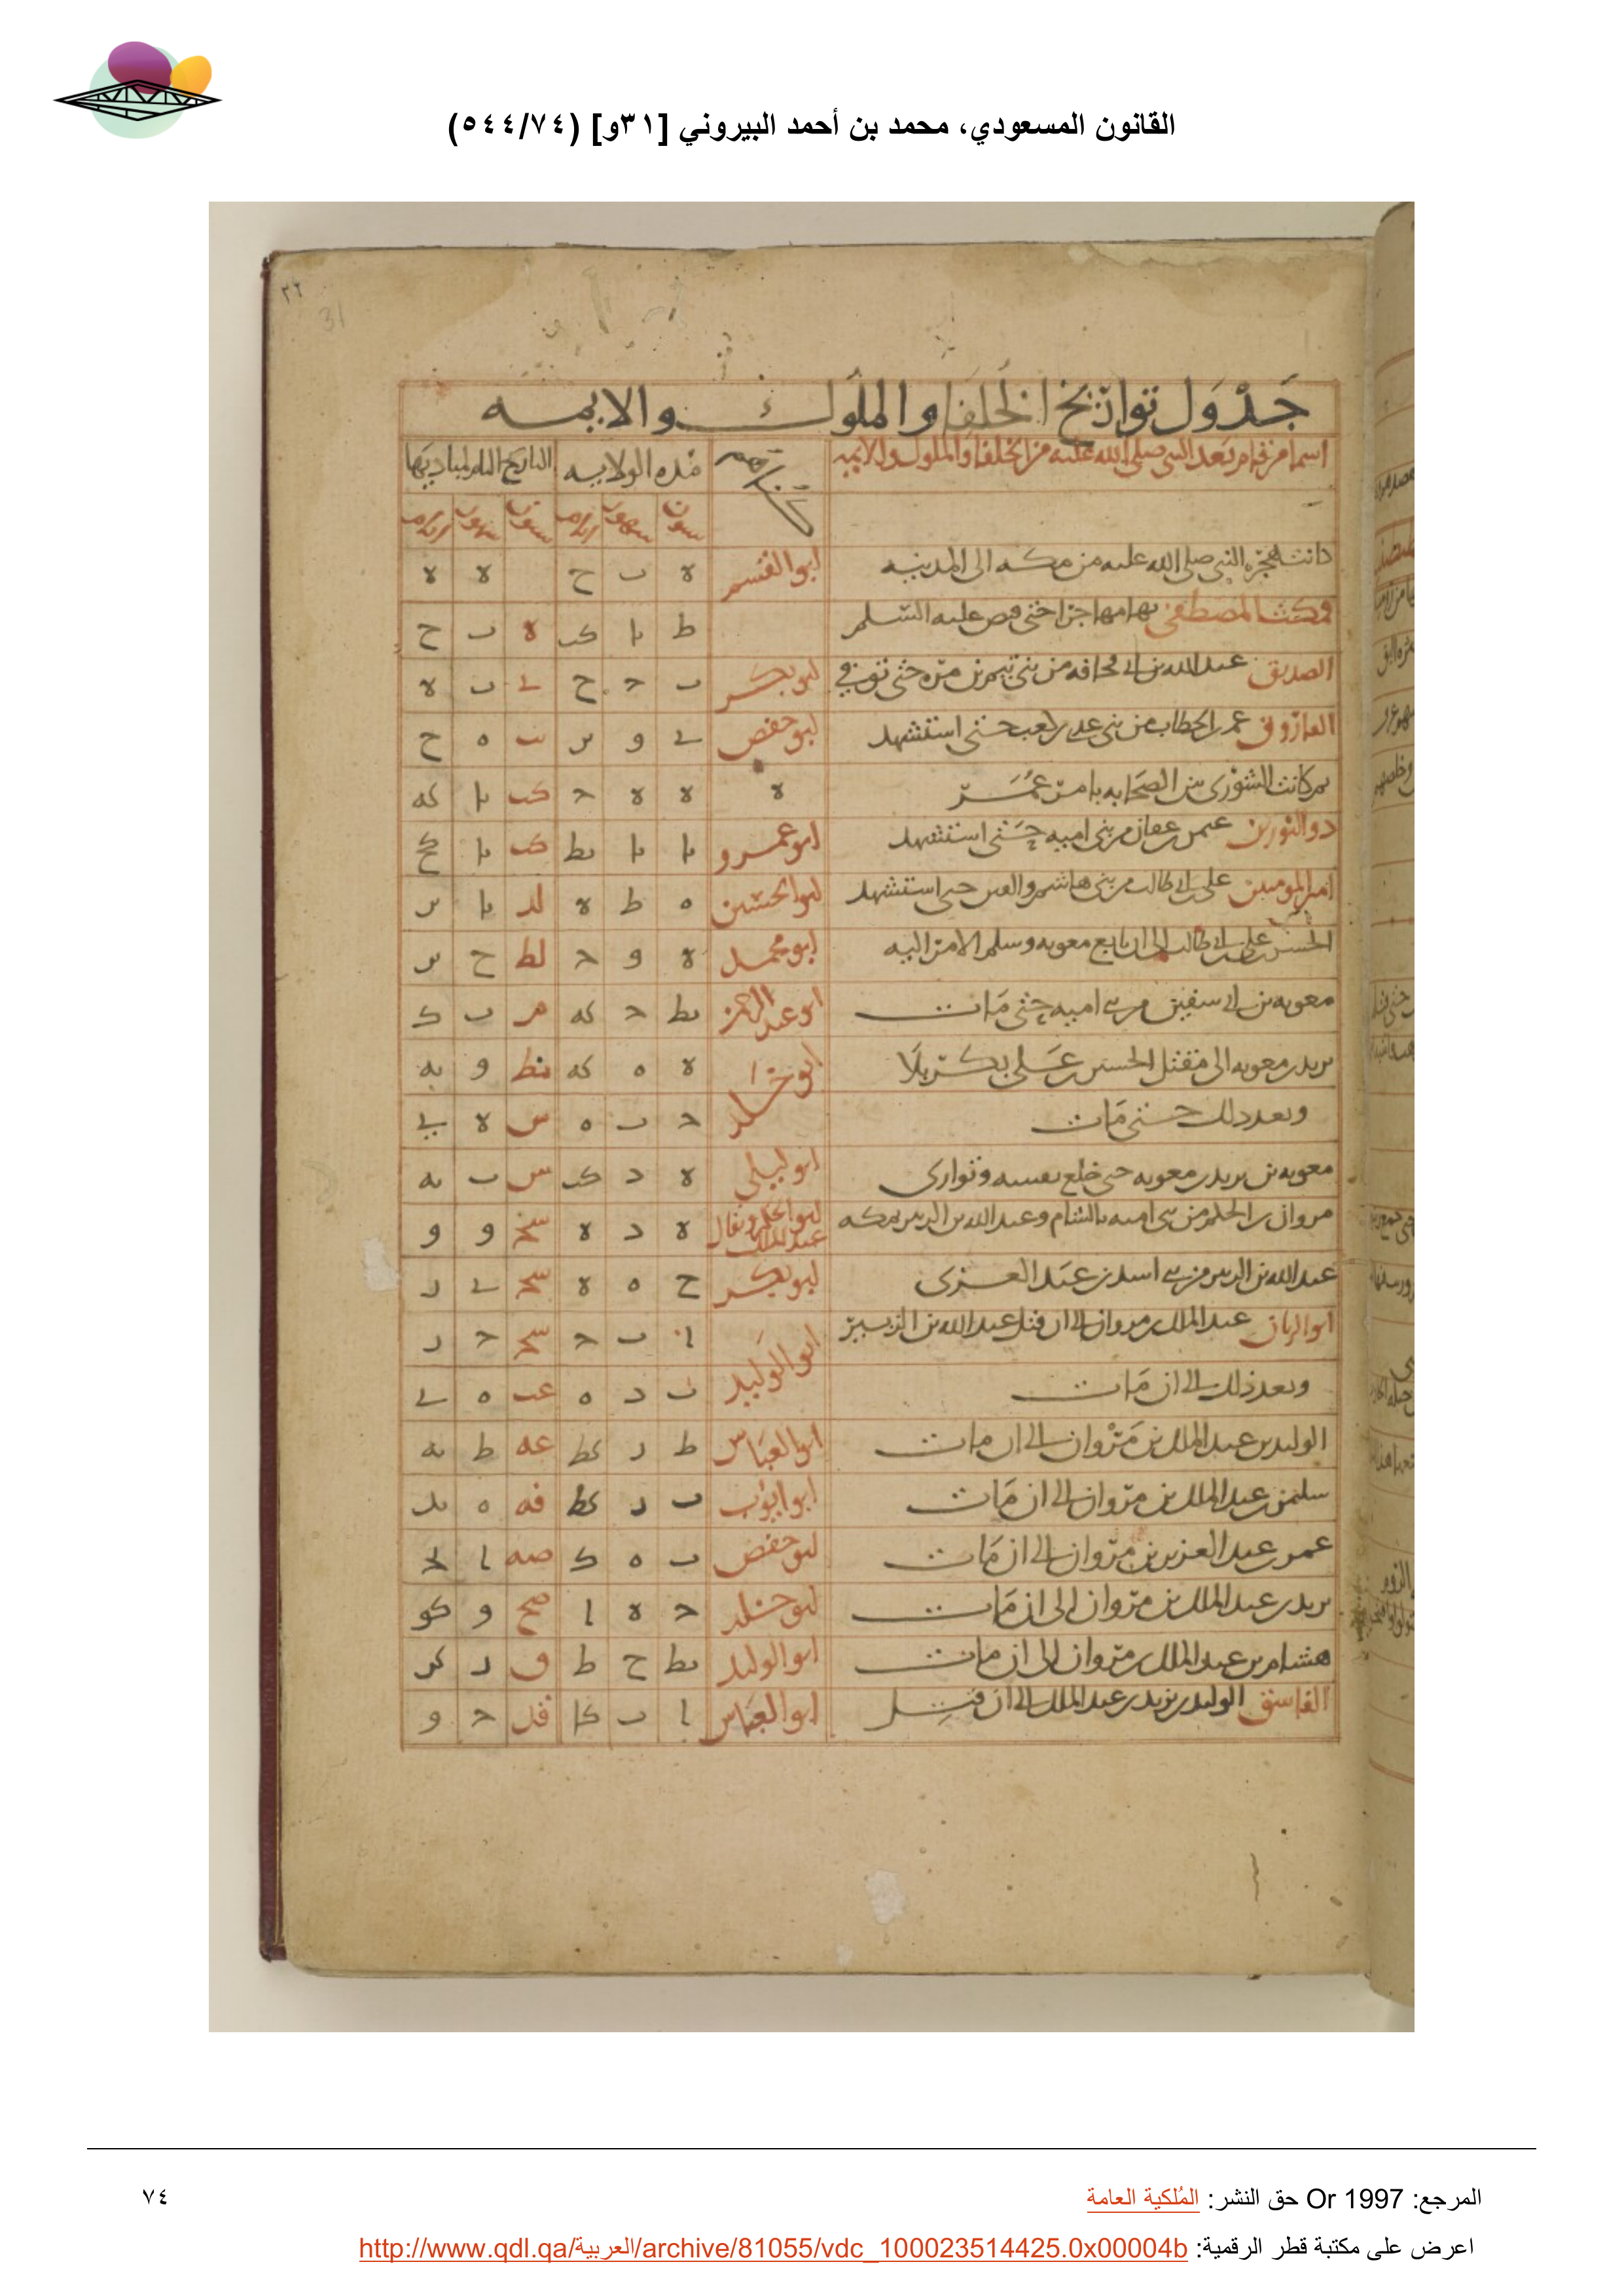 القانون المسعودي، محمد بن أحمد البيروني [٣١و] (٥٤٤/٧٤)
٣٢
31
جدول تواريخ الخلفا والملوك والايمه
اسما من قام بعد النبي صلى الله عليه من الخلفا والملوك والايمه كناهم مده الولايه التاريخ التام لمباديها
سنون شهور ايام سنون شهور ايام
كانت هجره النبي صلى الله عليه من مكه الى المدينه ابو القسم ه ب ح ه ه
ومكث المصطفى بها مهاجرا حتى قبض عليه السلم ط يا كب ه ب ح
الصديق عبد الله بن ابي قحافه من بني تيم بن مره حتى توفي ابو بكر ب ح ح ي ب ه
الفاروق عمر بن الخطاب من بني عدي بن كعب حتى استشهد ابو حفص ي و يب ه ح
ثم كانت الشورى بين الصحابه بامر عمر ه ه ه ح كب يا كه
ذو النورين عثمن بن عفان من بني اميه حتى استشهد ابو عمرو يا يا يط كب يا كح
امير المومنين علي بن ابي طالب من بني هاشم حتى استشهد ابو الحسين ه ط ه لد يا
الحسن بن علي بن ابي طالب الى ان بايع معويه وسلم الامر اليه ابو محمد ه و ح لط ح
معويه بن ابي سفين من بني اميه حتى مات ابو عبد الرحمن يط ح كه م ب ك
يزيد بن معويه الى مقتل الحسين بن علي بكربلا ابو خلد ه ه كه نط و يه
وبعد ذلك حتى مات ح ب ه س ه يي
معويه بن يزيد بن معويه حتى خلع نفسه وتوارى ابو ليلى ه د كب س ب يه
مروان بن الحكم من بني اميه بالشام وعبد الله بن الزبير بمكه ابو الحكم ويقال عبد الملك ه د ه سح و و
عبد الله بن الزبير من بني اسد بن عبد العزى ابو بكر ح ه ه سح ي د
ابو الذبان عبد الملك بن مروان الى ان قتل عبد الله بن الزبير ابو الوليد ا ب ح سح ح د
وبعد ذلك الى ان مات يب د ه عب ه ي
الوليد بن عبد الملك بن مروان الى ان مات ابو العباس ط د كط عه ط يه
سليمن بن عبد الملك بن مروان الى ان مات ابو ايوب ب د كط فه ه يد
عمر بن عبد العزيز بن مروان الى ان مات ابو حفص ب ه ك صه ا
يزيد بن عبد الملك بن مروان الى ان مات ابو خلد ح ه ا صح و كو
هشام بن عبد الملك بن مروان الى ان مات ابو الوليد يط ح ط ق د كز
الفاسق الوليد بن يزيد بن عبد الملك الى ان قتل ابو العباس ا ب كا قك ح و
المرجع: Or 1997 حق النشر: المُلكية العامة
٧٤
اعرض على مكتبة قطر الرقمية: http://www.qdl.qa/العربية/archive/81055/vdc_100023514425.0x00004b